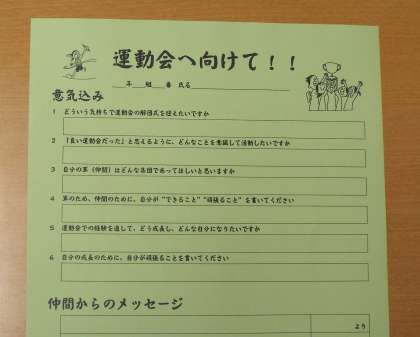 運動会へ向けて！！
年 組 番 氏名
意気込み
1 どういう気持ちで運動会の解団式を迎えたいですか
2 「良い運動会だった」と思えるように、どんなことを意識して活動したいですか
3 自分の軍（仲間）はどんな集団であってほしいと思いますか
4 軍のため、仲間のために、自分が“できること”“頑張ること”を書いてください
5 運動会での経験を通して、どう成長し、どんな自分になりたいですか
6 自分の成長のために、自分が頑張ることを書いてください
仲間からのメッセージ
より